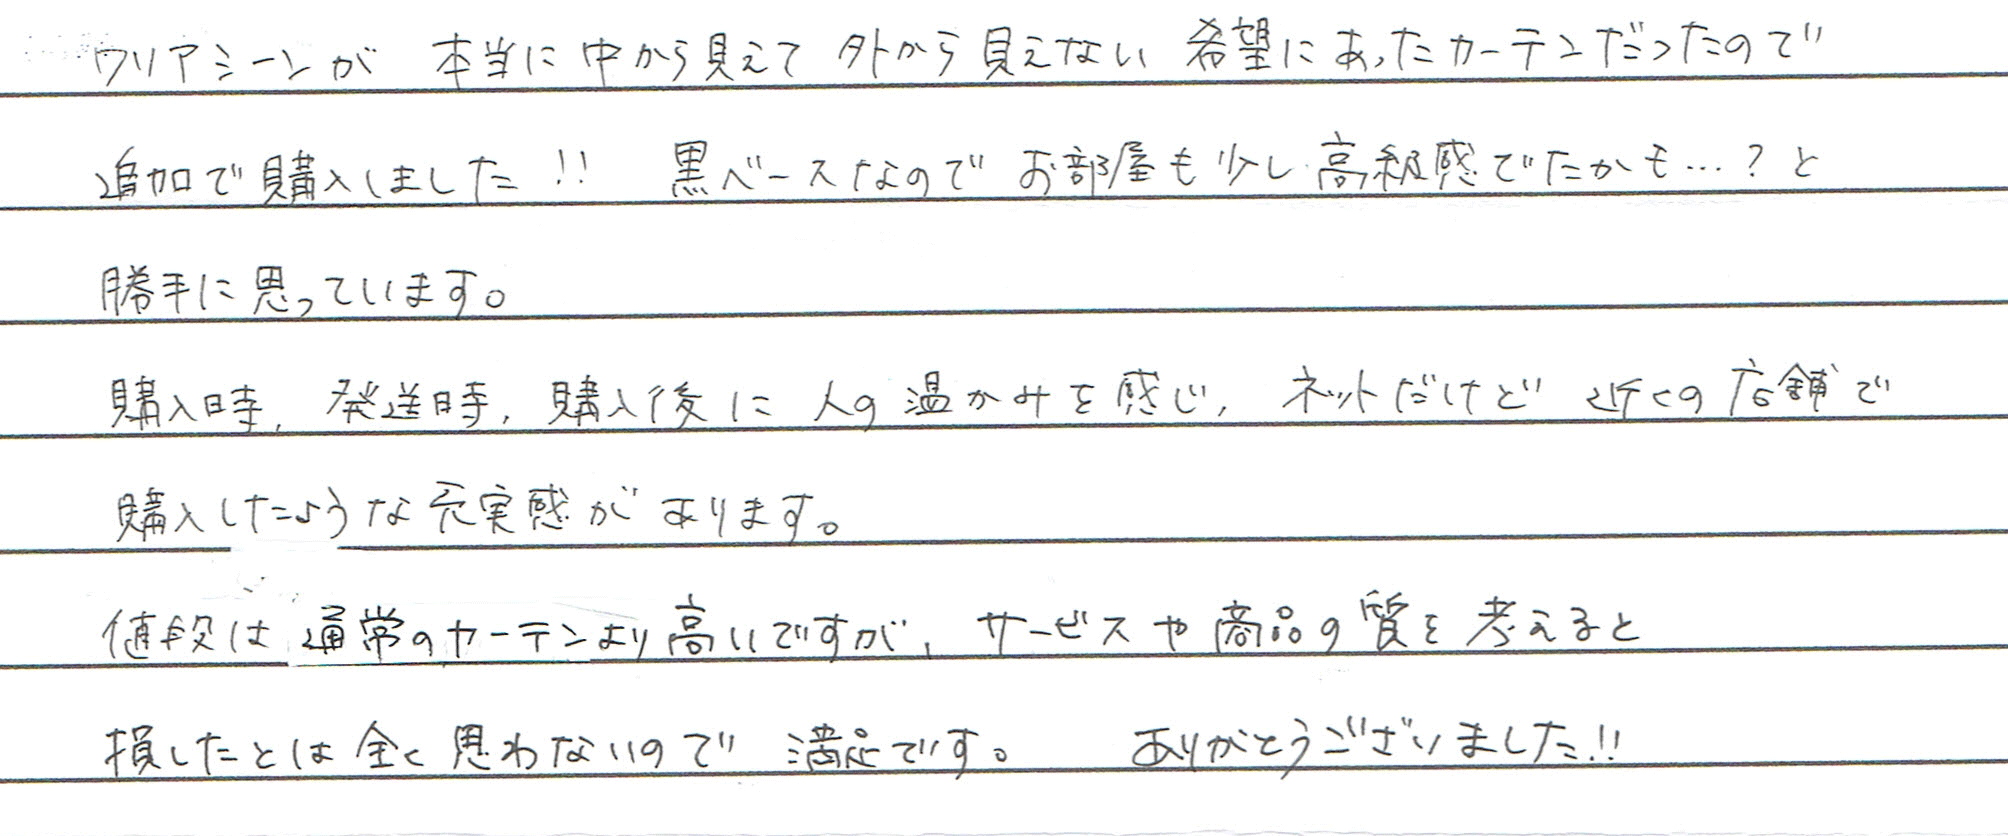 クリアシーンが 本当に中から見えて 外から見えない 希望にあったカーテンだったので
追加で購入しました!! 黒ベースなので お部屋も少し高級感でたかも…?と
勝手に思っています。
購入時, 発送時, 購入後に 人の温かみを感じ, ネットだけど 近くの店舗で
購入したような充実感があります。
値段は通常のカーテンより高いですが, サービスや商品の質を考えると
損したとは全く思わないので 満足です。 ありがとうございました!!